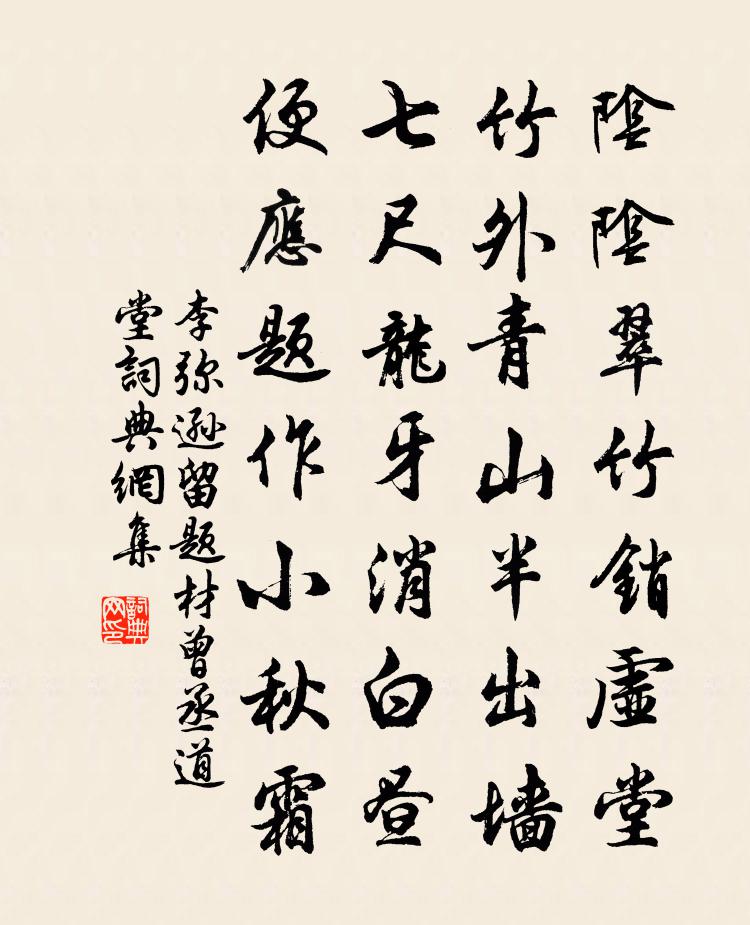 陰陰翠竹銷虛堂
竹外青山半出墙
七尺龍牙消白昼
便應题作小秋霜
李弥遜留题材曾丞道
堂詞典網集
詞典网印